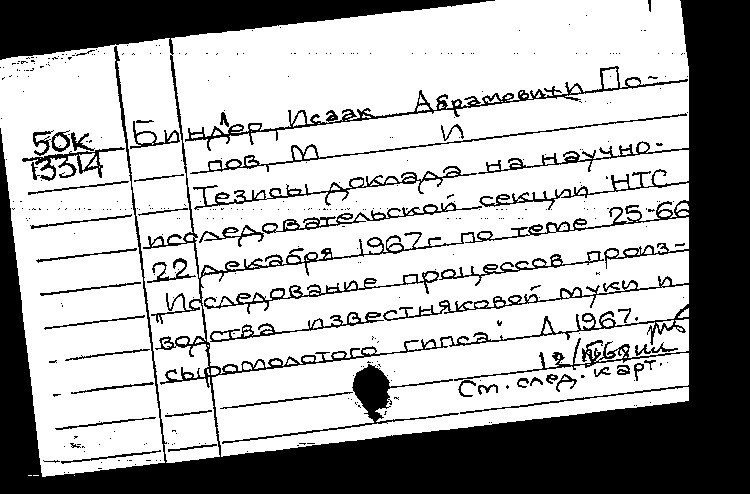 50к
13314
Биндер, Исаак Абрамович и По-
пов, М И
Тезисы доклада на научно-
исследовательской секции НТС
22 декабря 1967г. по теме 25-66
"Исследование процессов произ-
водства известняковой муки и
сыромолотого гипса". Л., 1967.
См. след. карт.